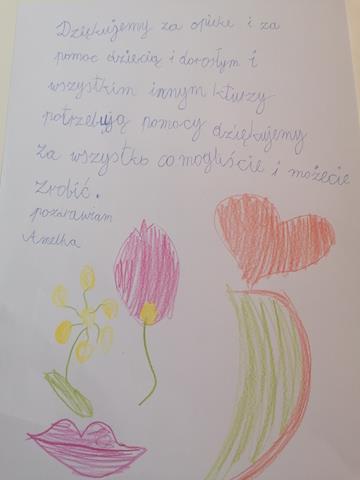 Dziękujemy za opiekę i za
pomoc dziecią i dorosłym i
wszystkim innym kturzy
potrzebują pomocy dziękujemy
za wszystko co mogliście i możecie
zrobić.
pozdrawiam
Amelka